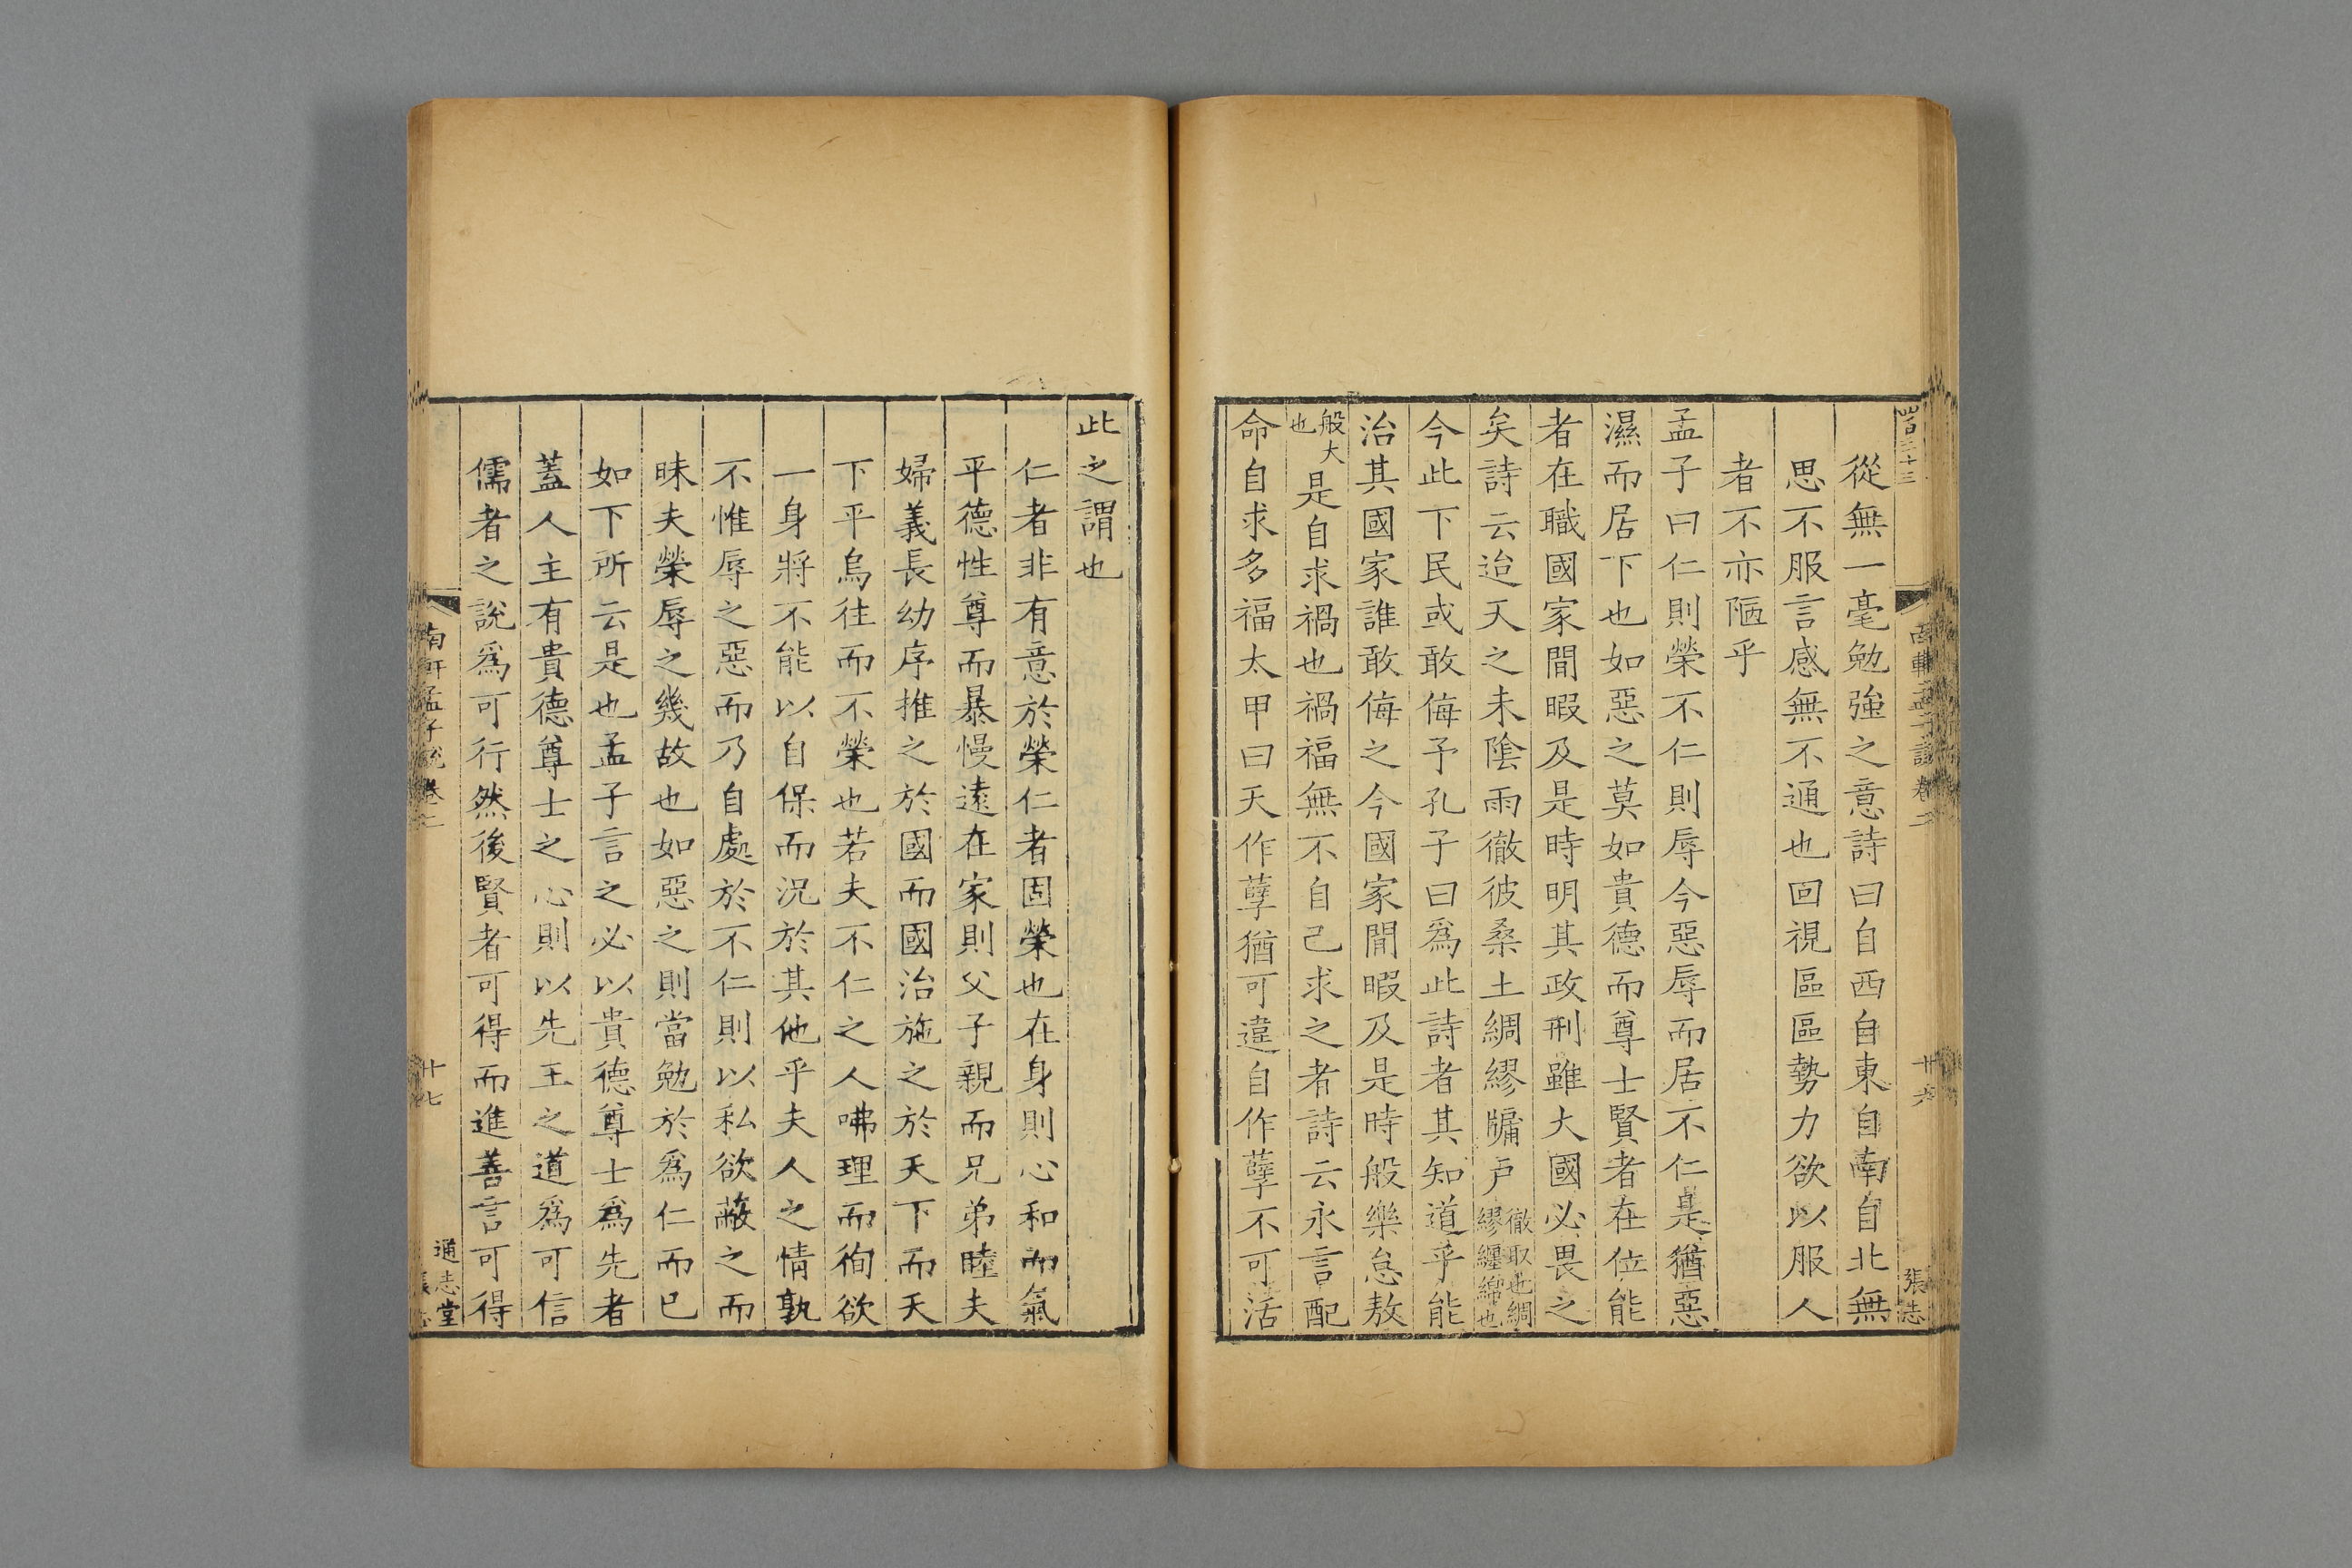 從無一毫勉強之意詩曰自西自東自南自北無
思不服言感無不通也回視區區勢力欲以服人
者不亦陋乎
孟子曰仁則榮不仁則辱今惡辱而居不仁是猶惡
濕而居下也如惡之莫如貴德而尊士賢者在位能
者在職國家閒暇及是時明其政刑雖大國必畏之
矣詩云迨天之未陰雨徹彼桑土綢繆牖户徹取也綢繆纏綿也
今此下民或敢侮予孔子曰爲此詩者其知道乎能
治其國家誰敢侮之今國家閒暇及是時般樂怠敖
般大也是自求禍也禍福無不自己求之者詩云永言配
命自求多福太甲曰天作孽猶可違自作孽不可活
南軒孟子說卷二
廿六
張志
此之謂也
仁者非有意於榮仁者固榮也在身則心和而氣
平德性尊而暴慢遠在家則父子親而兄弟睦夫
婦義長幼序推之於國而國治施之於天下而天
下平烏往而不榮也若夫不仁之人咈理而徇欲
一身將不能以自保而況於其他乎夫人之情孰
不惟辱之惡而乃自處於不仁則以私欲蔽之而
昧夫榮辱之幾故也如惡之則當勉於爲仁而已
如下所云是也孟子言之必以貴德尊士爲先者
蓋人主有貴德尊士之心則以先王之道爲可信
儒者之說爲可行然後賢者可得而進善言可得
南軒孟子說卷二
廿七
通志堂